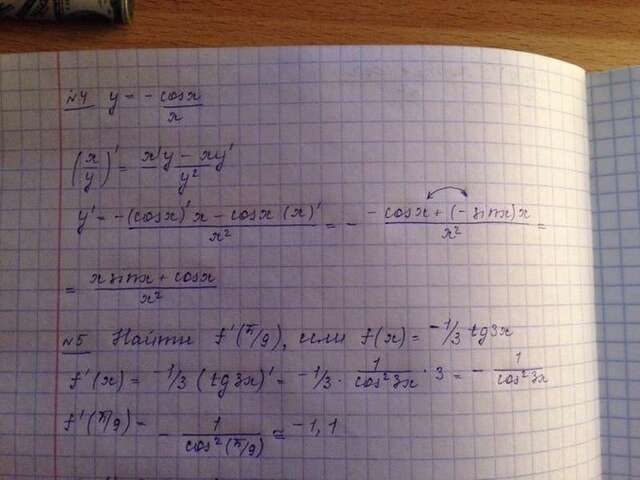 №4 y = - cosx/x
(x/y)' = (x'y - xy')/y²
y' = - ((cosx)'x - cosx(x)')/x² = - (-cosx + (-sinx)x)/x² =
= (x sinx + cosx)/x²
№5 Найти f'(π/9), если f(x) = -1/3 tg3x
f'(x) = -1/3 (tg3x)' = -1/3 · 1/cos²3x · 3 = - 1/cos²3x
f'(π/9) = - 1/cos²(π/9) ≈ -1,1